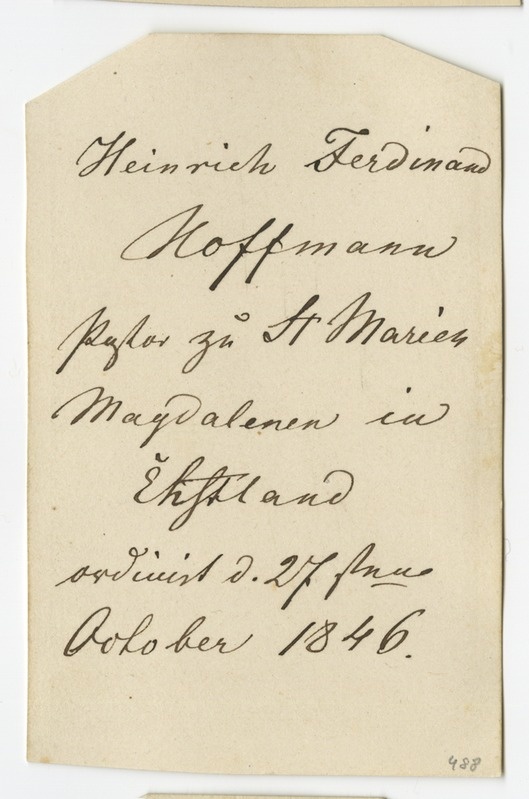 Heinrich Ferdinand
Hoffmann
Pastor zu St Marien
Magdalenen in
Ehstland
ordinirt d. 27 sten
October 1846.
488